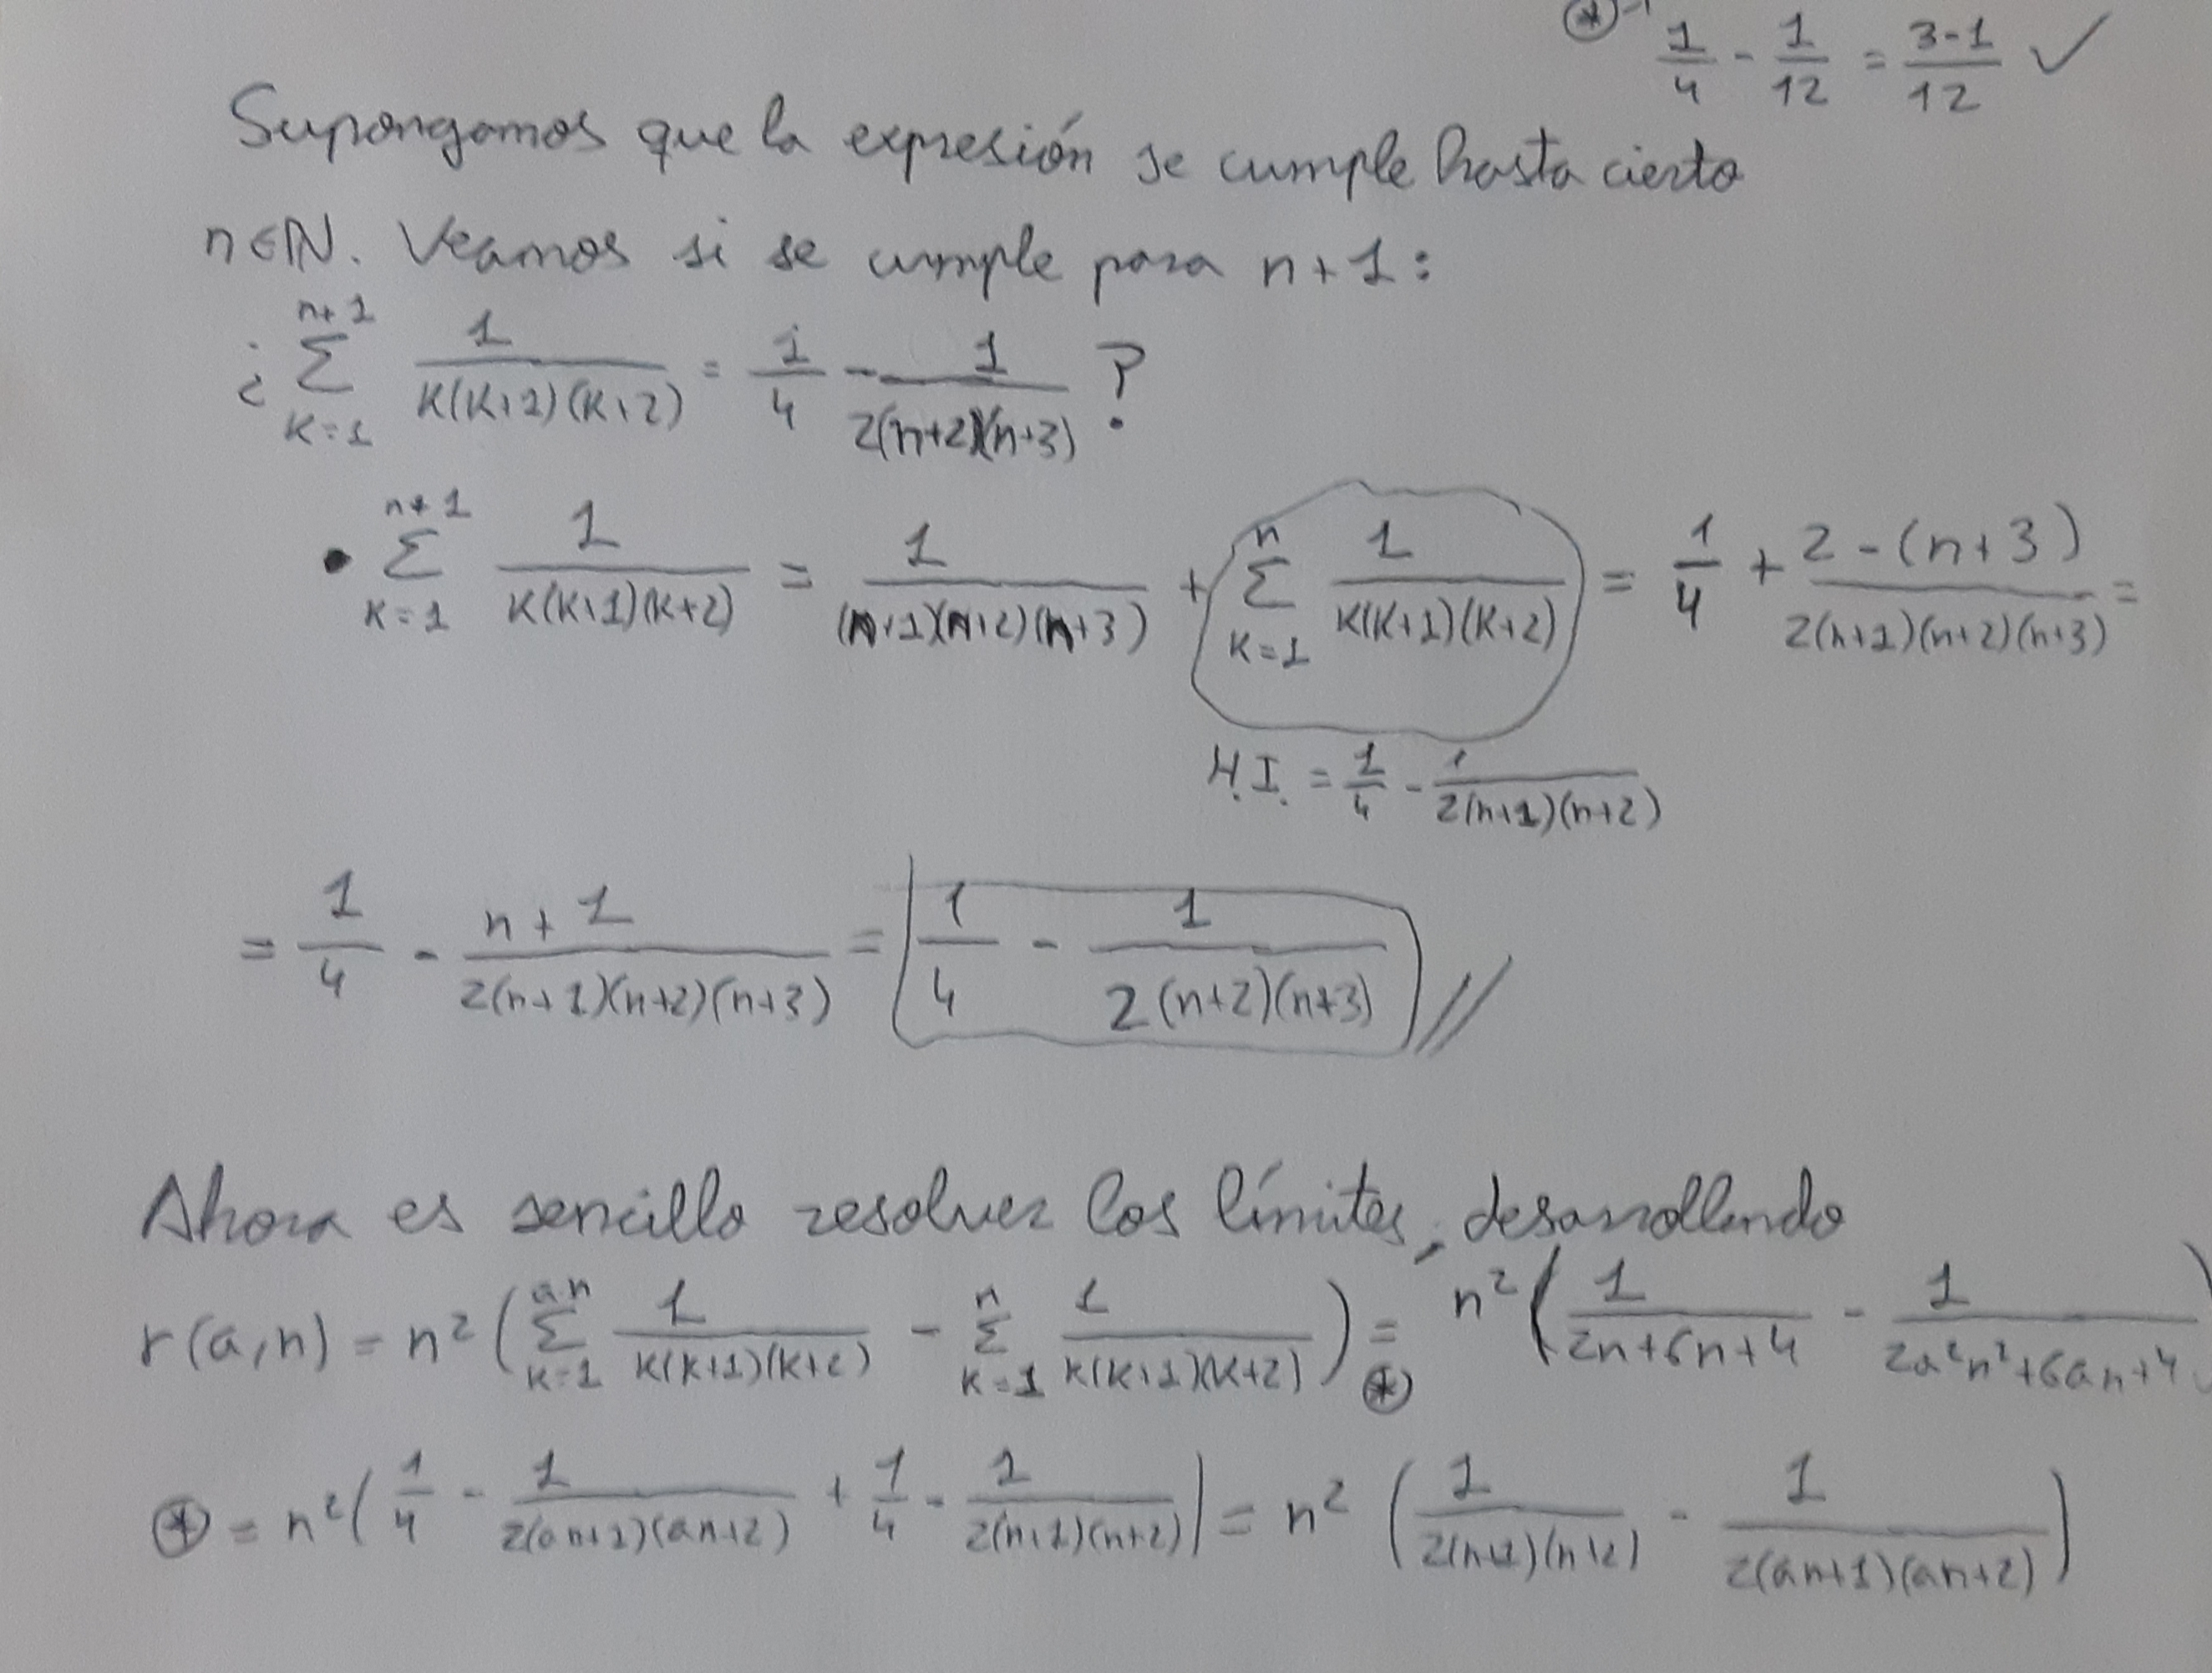 ⊛ 1/4 - 1/12 = (3-1)/12 ✓
Supongamos que la expresión se cumple hasta cierto
n∈ℕ. Veamos si se cumple para n+1:
¿ Σ_{K=1}^{n+1} 1/(K(K+1)(K+2)) = 1/4 - 1/(2(n+2)(n+3)) ?
• Σ_{K=1}^{n+1} 1/(K(K+1)(K+2)) = 1/((n+1)(n+2)(n+3)) + Σ_{K=1}^{n} 1/(K(K+1)(K+2)) = 1/4 + (2-(n+3))/(2(n+1)(n+2)(n+3)) =
H.I. = 1/4 - 1/(2(n+1)(n+2))
= 1/4 - (n+1)/(2(n+1)(n+2)(n+3)) = 1/4 - 1/(2(n+2)(n+3)) //
Ahora es sencillo resolver los límites, desarrollando
r(a,n) = n² ( Σ_{K=1}^{an} 1/(K(K+1)(K+2)) - Σ_{K=1}^{n} 1/(K(K+1)(K+2)) ) =⊛ n² ( 1/(2n+6n+4) - 1/(2a²n²+6an+4) )
⊛ = n² ( 1/4 - 1/(2(an+1)(an+2)) + 1/4 - 1/(2(n+1)(n+2)) ) = n² ( 1/(2(n+1)(n+2)) - 1/(2(an+1)(an+2)) )